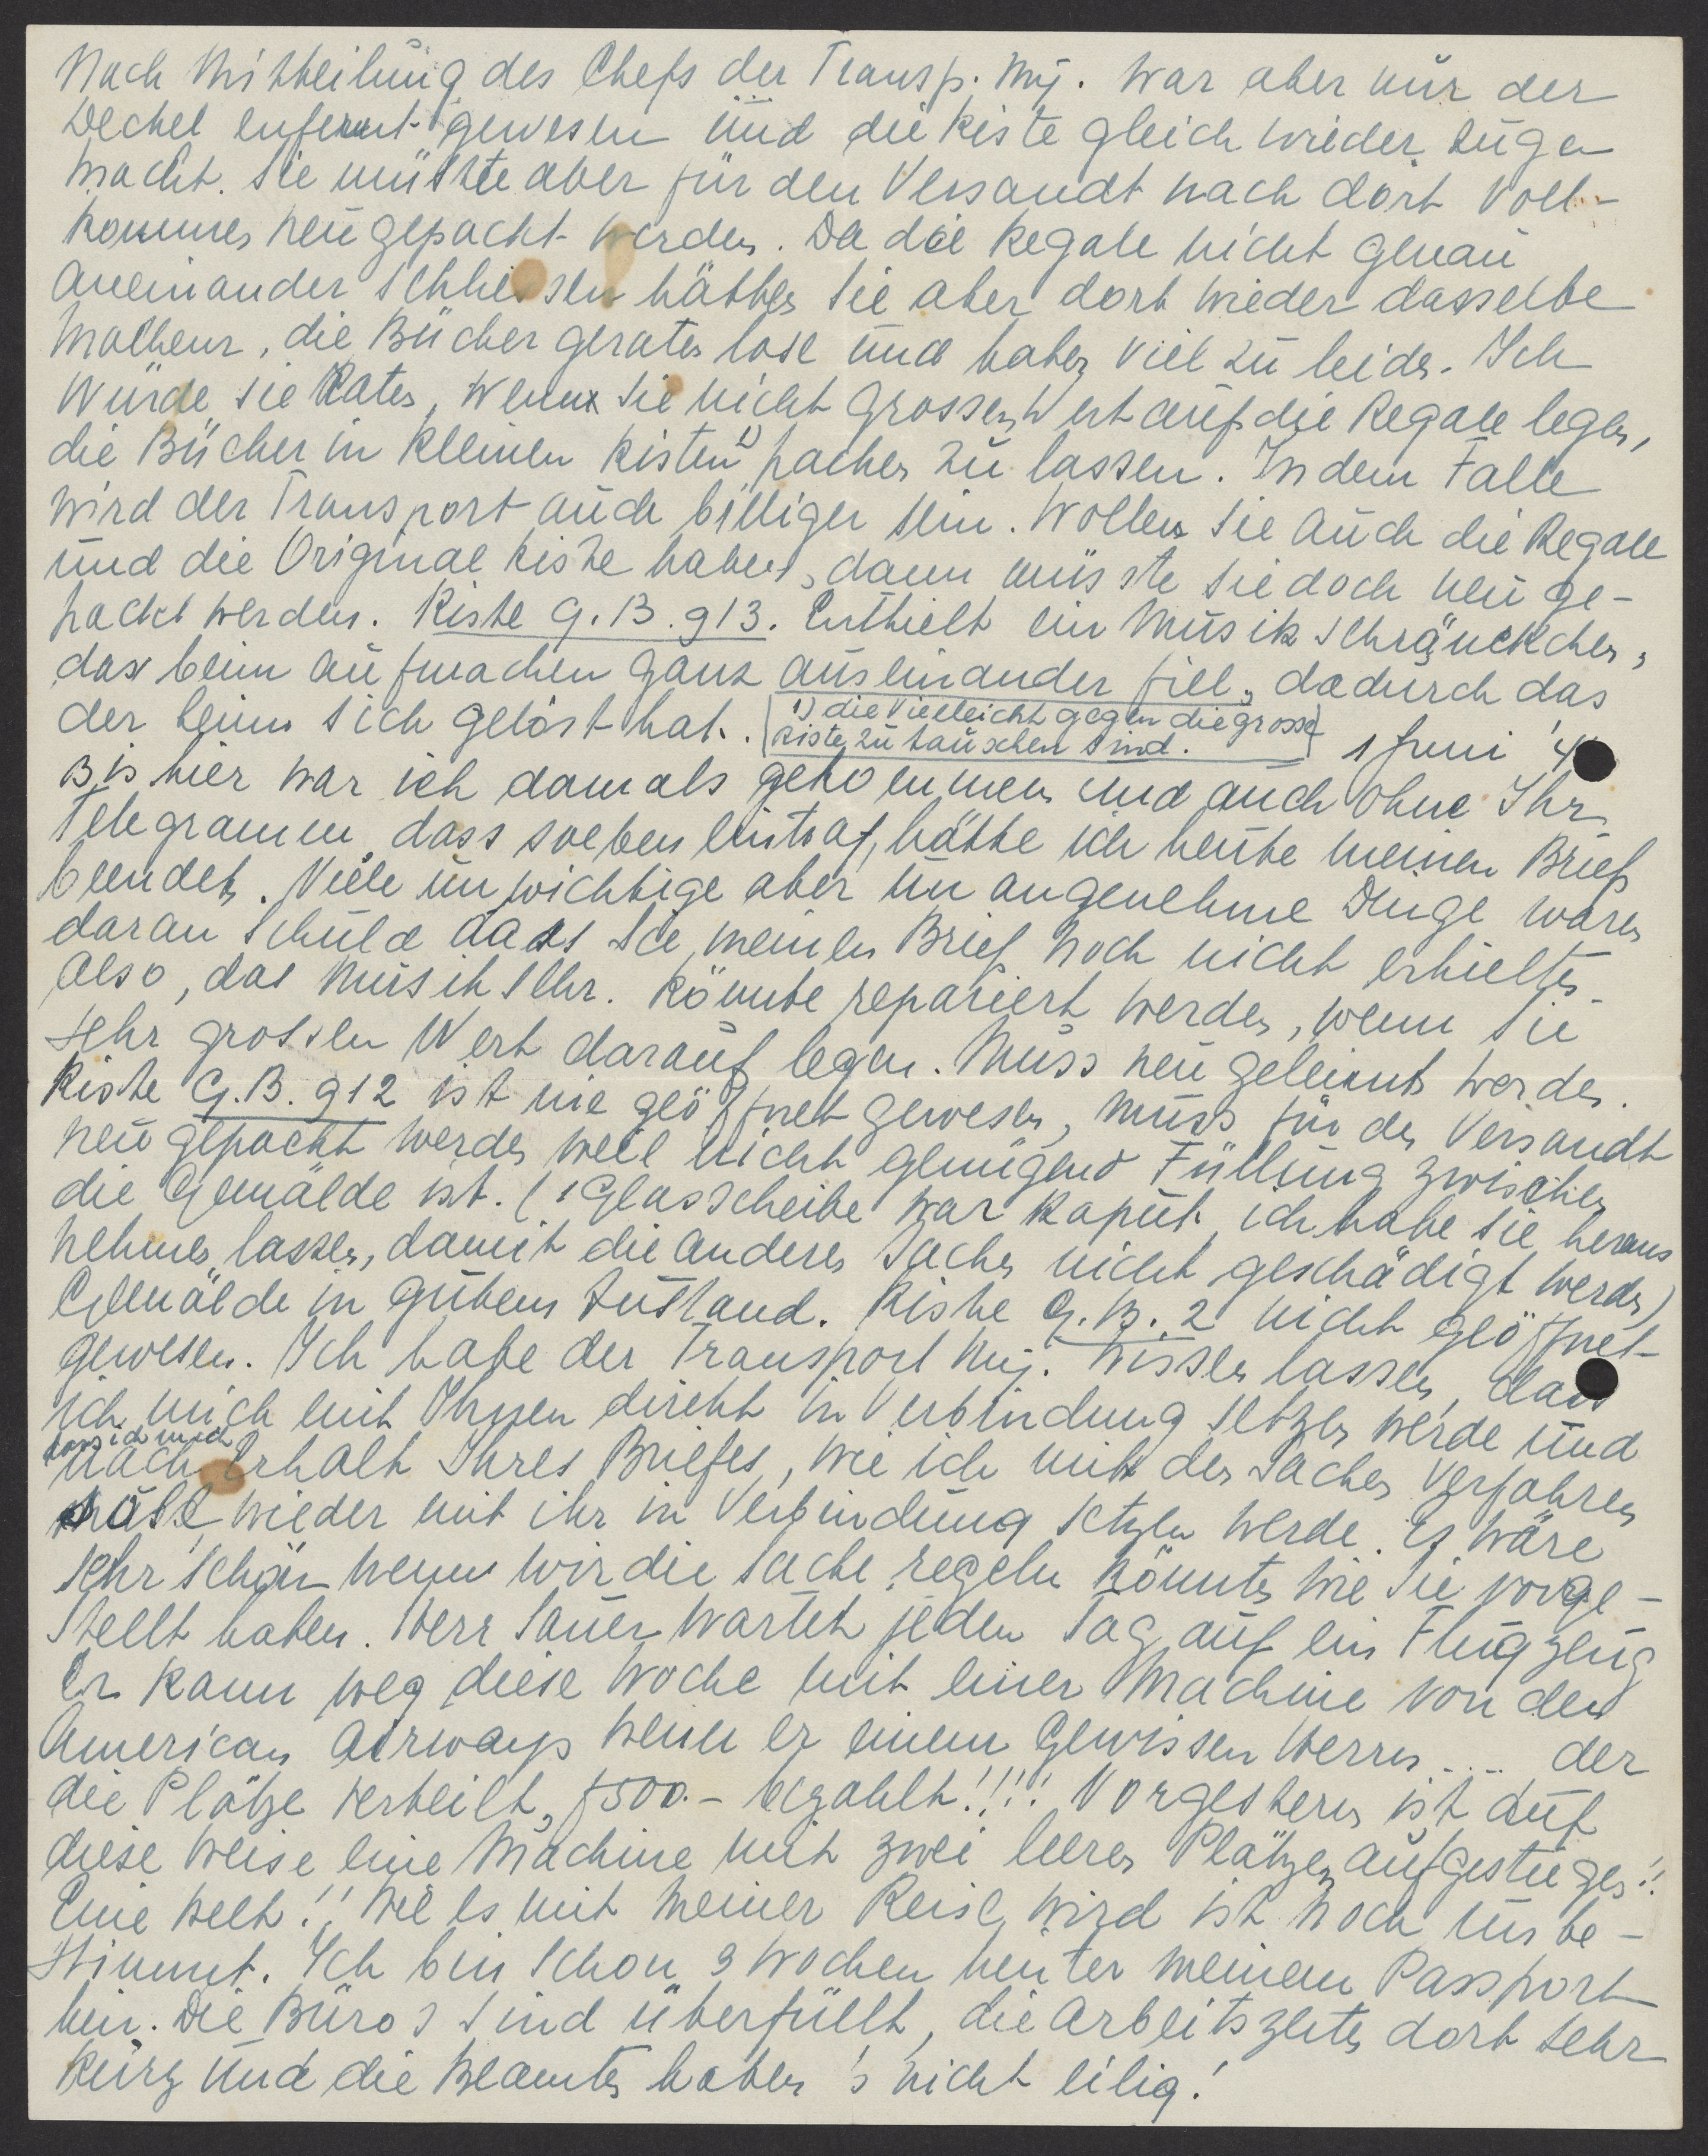 Nach Mitteilung des Chefs der Transp. Mij. war aber nur der
Deckel enfernt gewesen und die Kiste gleich wieder zuge
macht. Sie müsste aber für den Versandt nach dort voll-
kommen neu gepackt werden. Da die Regale nicht genau
aneinander schliessen hätten Sie aber dort wieder dasselbe
Malheur, die Bücher geraten lose und haben viel zu leiden. Ich
würde sie raten, wenn Sie nicht grossen Wert auf die Regale legen,
die Bücher in kleinen Kisten 1) packen zu lassen. In dem Falle
wird der Transport auch billiger sein. Wollen Sie auch die Regale
und die Original Kiste haben, dann müsste sie doch neu ge-
packt werden. Kiste G.B. 913. Enthielt ein Musik schränckchen,
das beim aufmachen ganz auseinander fiel, dadurch das
der Leim sich gelöst hat.
1) die vielleicht gegen die grosse
Kiste zu tauschen sind.
1 Juni '4
Bis hier war ich damals gekommen und auch ohne Ihr
Telegramm dass soeben eintraf, hätte ich heute meinen Brief
beendet. Viele unwichtige aber unangenehme Dinge waren
daran Schuld dass Sie meinen Brief noch nicht erhielten.
Also, das Musik schr. könnte repariert werden, wenn Sie
sehr grossen Wert darauf legen. Muss neu geleimt werden.
Kiste G.B. 912 ist nie geöffnet gewesen, muss für den Versandt
neu gepackt werden weil nicht genügend Füllung zwischen
die Gemälde ist. (1 Glasscheibe war kaput, ich habe sie heraus
nehmen lassen, damit die anderen Sachen nicht geschädigt werden)
Gemälde in gutem Zustand. Kiste G.B. 2 nicht geöffnet
gewesen. Ich habe der Transport Mij. wissen lassen, dass
ich mich mit Ihnen direkt in Verbindung setzen werde und
dass ich mich
nach Erhalt Ihres Briefes, wie ich mit den Sachen verfahren
wieder mit ihr in Verbindung setzen werde. Es wäre
sehr schön wenn wir die Sache regeln könnten wie Sie vorge-
stellt haben. Herr Sauer wartet jeden Tag auf ein Flugzeug
Er kann weg diese Woche mit einer Machine von den
American Airways wenn er einem gewissen Herrn .... der
die Plätze verteilt, f 500.- bezahlt!!!! Vorgestern ist auf
diese Weise eine Machine mit zwei leeren Plätzen aufgestiegen!!
Eine Welt!! Wie es mit meiner Reise wird ist noch unbe-
stimmt. Ich bin schon 3 Wochen hinter meinem Passport
hin. Die Büro's sind überfüllt, die Arbeitszeiten dort sehr
kurz und die Beamten haben's nicht eilig!